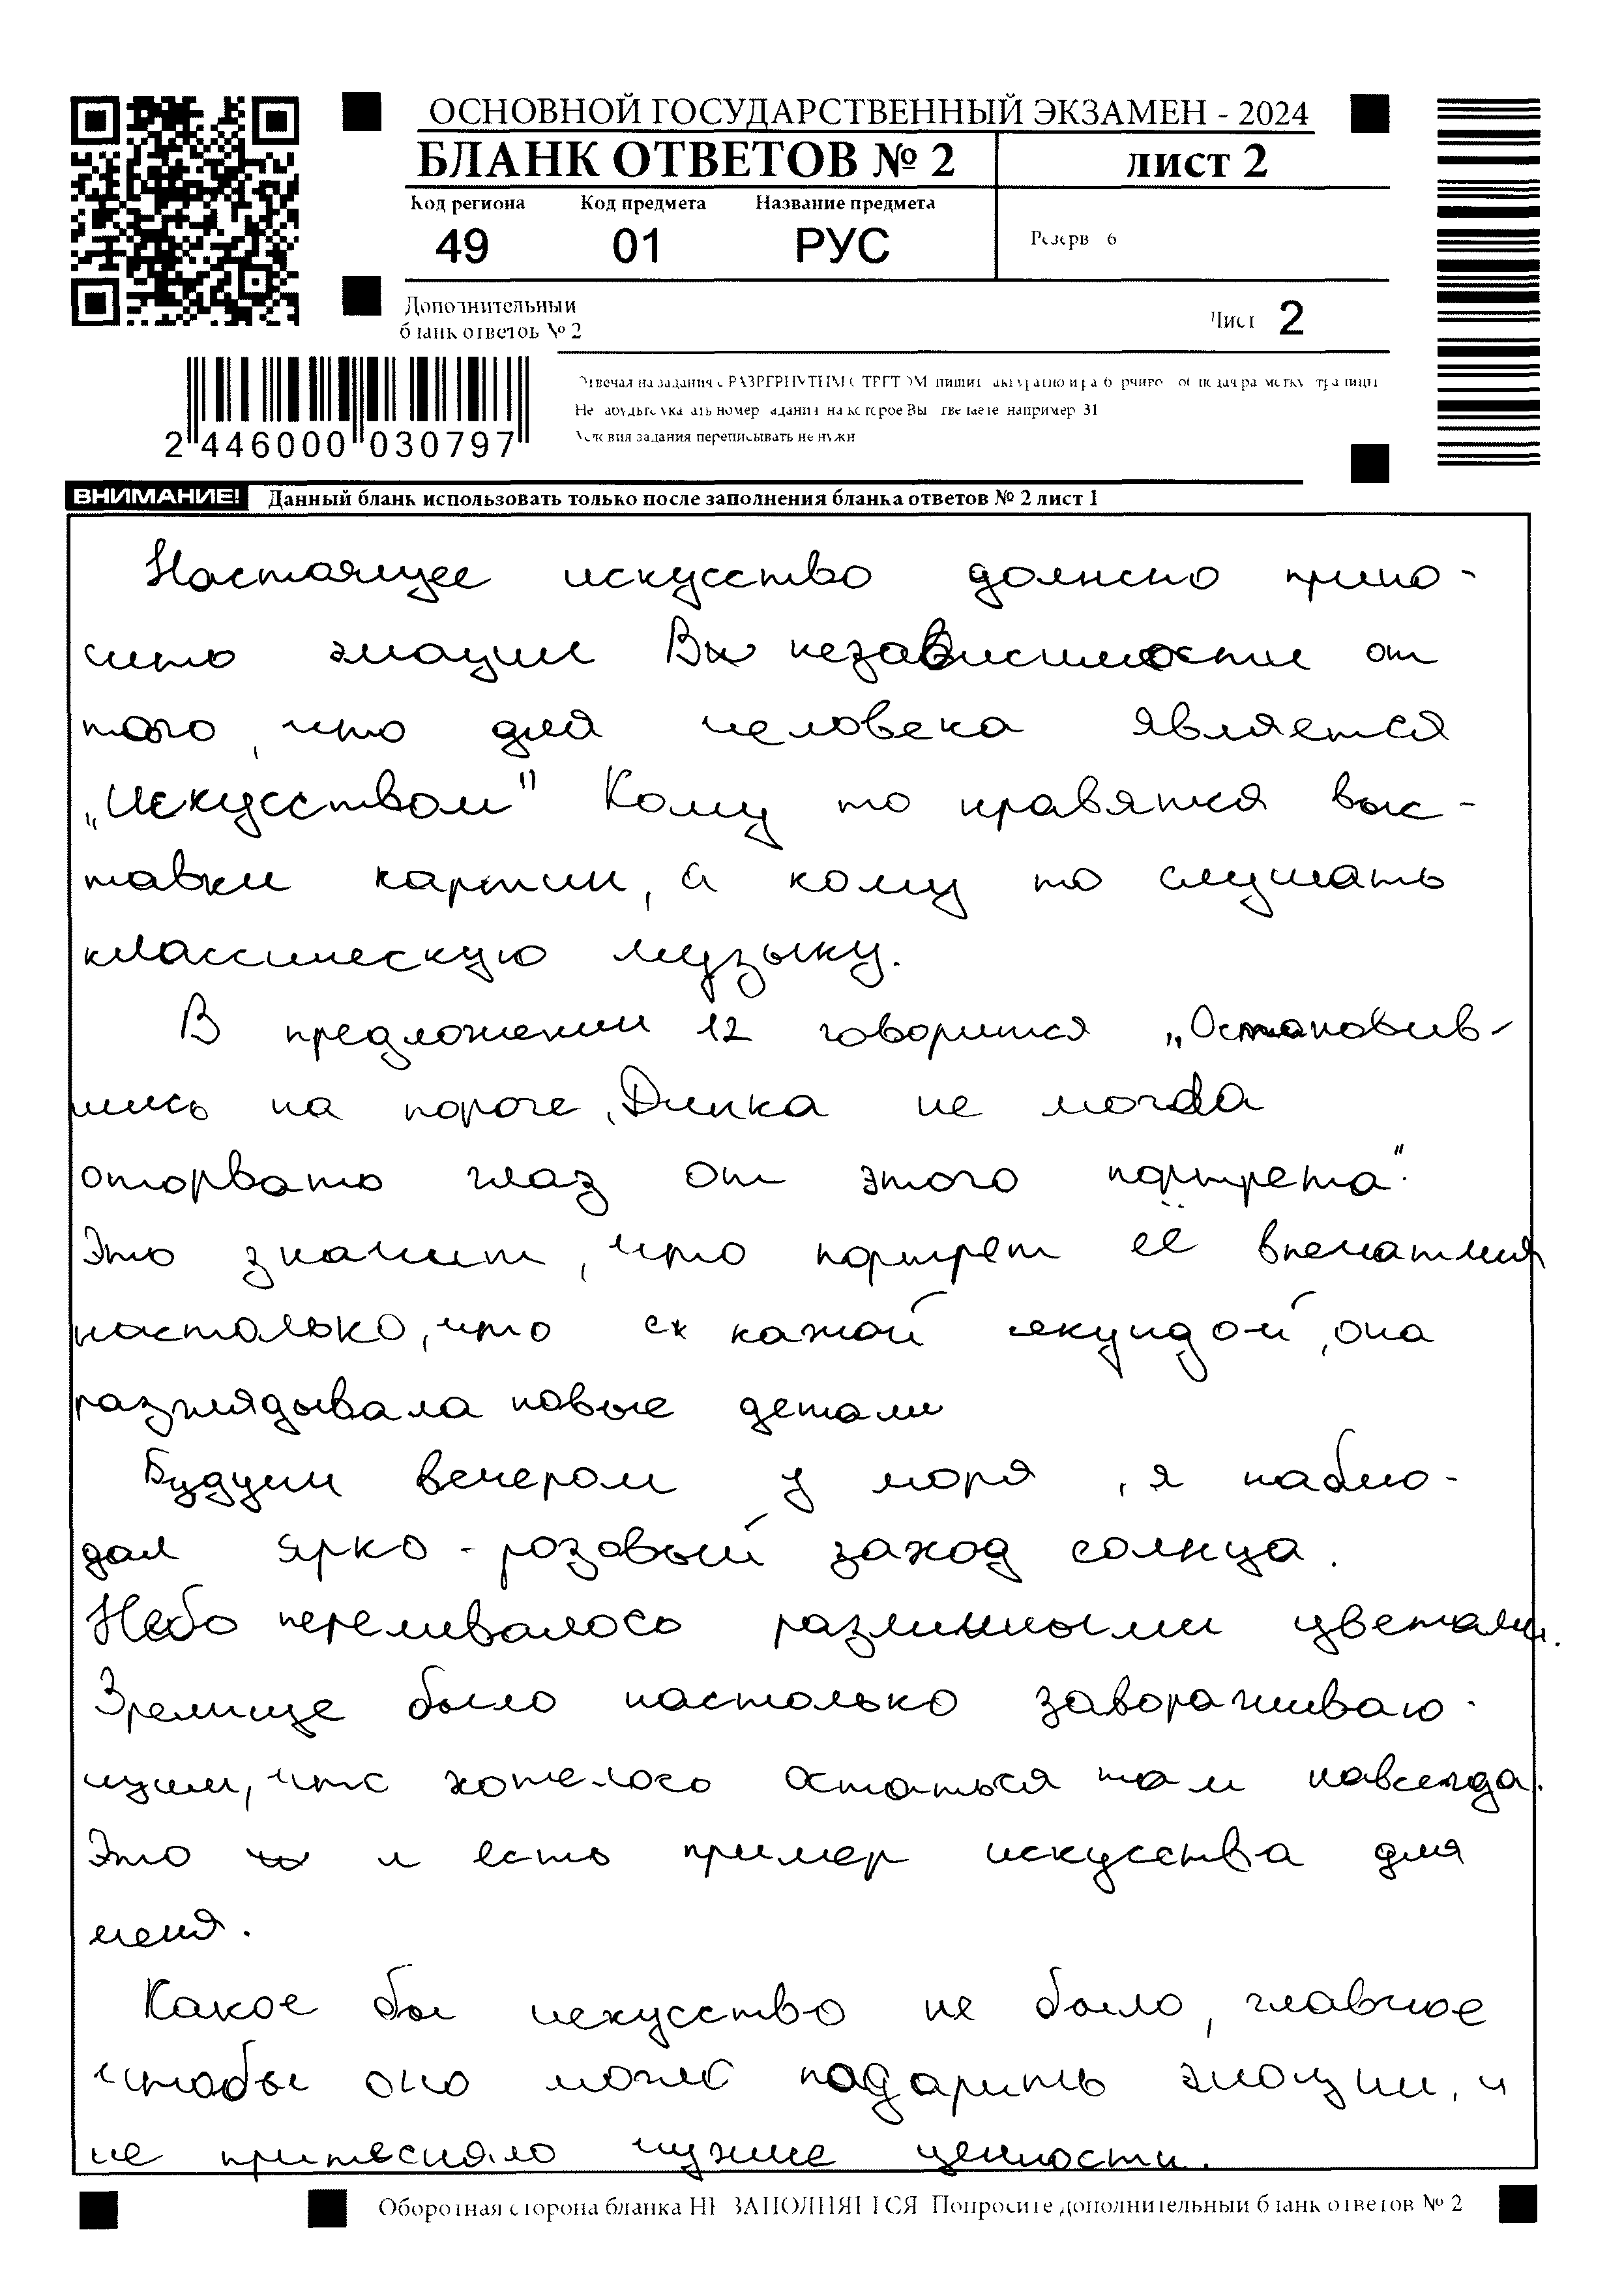 ОСНОВНОЙ ГОСУДАРСТВЕННЫЙ ЭКЗАМЕН - 2024
БЛАНК ОТВЕТОВ № 2
лист 2
Код региона Код предмета Название предмета
49 01 РУС
Резерв 6
Дополнительный
бланк ответов № 2
Лист 2
2 446000 030797
Условия задания переписывать не нужн
ВНИМАНИЕ! Данный бланк использовать только после заполнения бланка ответов № 2 лист 1
Настоящее искусство должно прино-
сить эмоции В независимости от
того, что для человека является
„Искусством" Кому то нравятся выс-
тавки картин, а кому то слушать
классическую музыку.
В предложении 12 говорится „Остановив-
шись на пороге, Динка не могла
оторвать глаз от этого портрета".
Это значит, что портрет её впечатлил
настолько, что с каждой секундой, она
разглядывала новые детали
Будучи вечером у моря, я наблю-
дал ярко-розовый заход солнца.
Небо переливалось различными цветами.
Зрелище было настолько заворачиваю-
щим, что хотелось остаться там навсегда.
Это и есть пример искусства для
меня.
Какое бы искусство не было, главное
чтобы оно могло подарить эмоции, и
не притесняло чужие ценности.
Оборотная сторона бланка НЕ ЗАПОЛНЯЕТСЯ Попросите дополнительный бланк ответов № 2